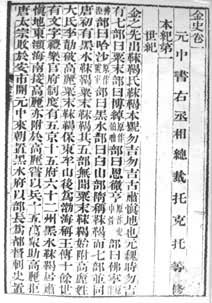 金史卷一
元中書右丞相總裁托克托等修
本紀第一
世紀
金之先出靺鞨氏靺鞨本號勿吉勿吉古肅慎地也元魏時勿吉
有七部曰粟末部曰博綽部曰恩徹亨部曰佛寧
部曰哈沙部曰黑水部曰白山部隋稱靺鞨而七部並同
唐初有黑水靺鞨粟末靺鞨其五部無聞粟末靺鞨始附高麗姓
大氏李勣破高麗粟末靺鞨保東牟山後為渤海稱王傳十餘世
有文字禮樂官府制度有五京十五府六十二州黑水靺鞨居肅
慎地東瀕海南接高麗亦附於高麗嘗以兵十五萬眾助高麗拒
唐太宗敗於安市開元中來朝置黑水府以部長為都督刺史置